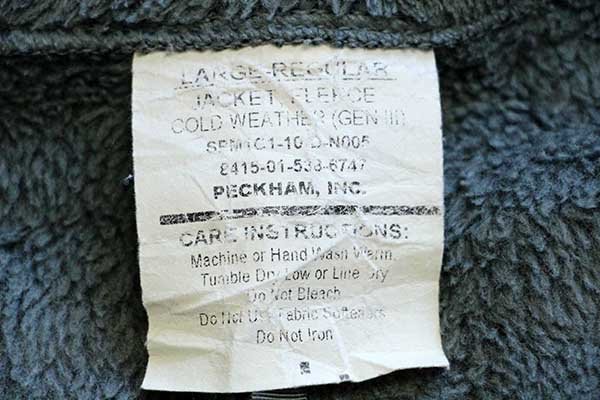 LARGE-REGULAR
JACKET, FLEECE
COLD WEATHER (GEN III)
SPM1C1-10-D-N005
8415-01-538-6747
PECKHAM, INC.
CARE INSTRUCTIONS:
Machine or Hand Wash Warm
Tumble Dry Low or Line Dry
Do Not Bleach
Do Not Use Fabric Softeners
Do Not Iron